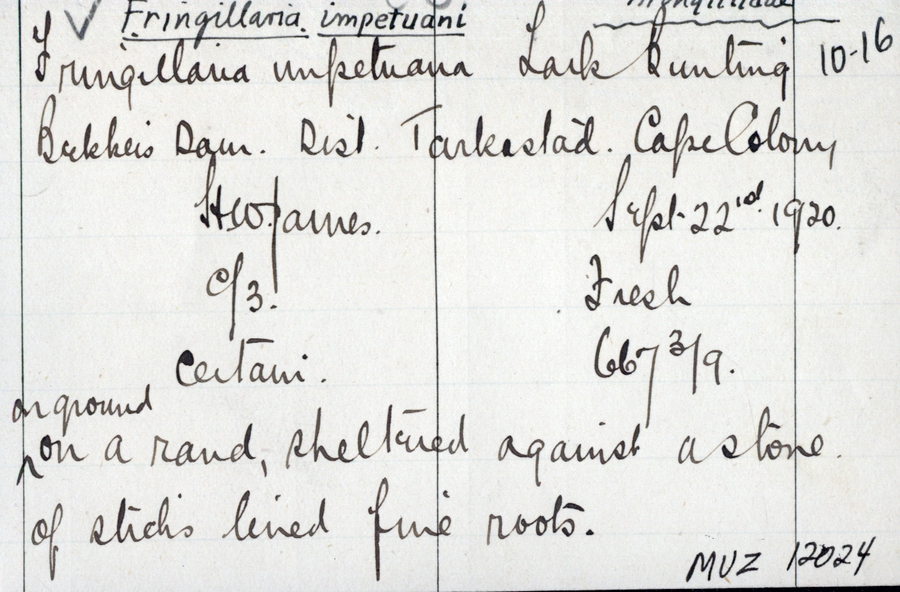 Fringillaria impetuani Fringillidae
Fringillaria impetuana Lark Bunting 10-16
Bekkers Dam. Dist. Tarkastad. Cape Colony
H.W. James. Sept 22nd 1920.
c/3. Fresh
Certain. 667 3/9.
on ground
on a rand, sheltered against a stone.
of sticks lined fine roots.
MVZ 12024